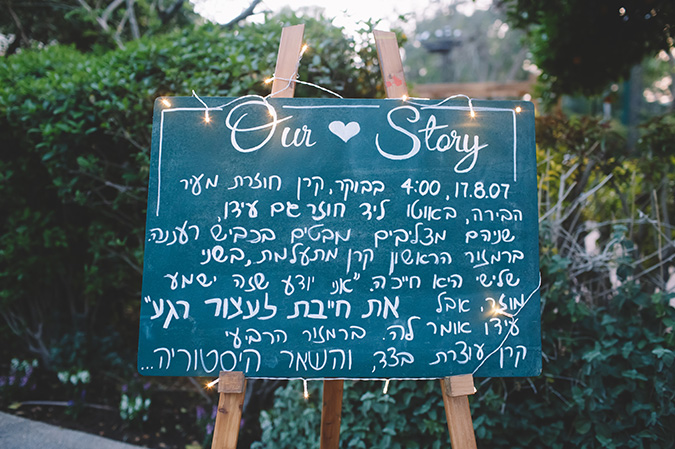 Our ♥ Story
17.8.07, 4:00 בבוקר, קרן חוזרת מעיר
הבירה, באוטו ליד חוזר גם עידו,
שניהם מצליבים מבטים בכביש רעננה.
ברמזור הראשון קרן מתעלמת, בשני
שלישי היא חייכה. "אני יודע שזה ישמע
מוזר אבל את חייבת לעצור רגע"
עידו אומר לה. ברמזור הרביעי
קרן עוצרת בצד, והשאר היסטוריה...